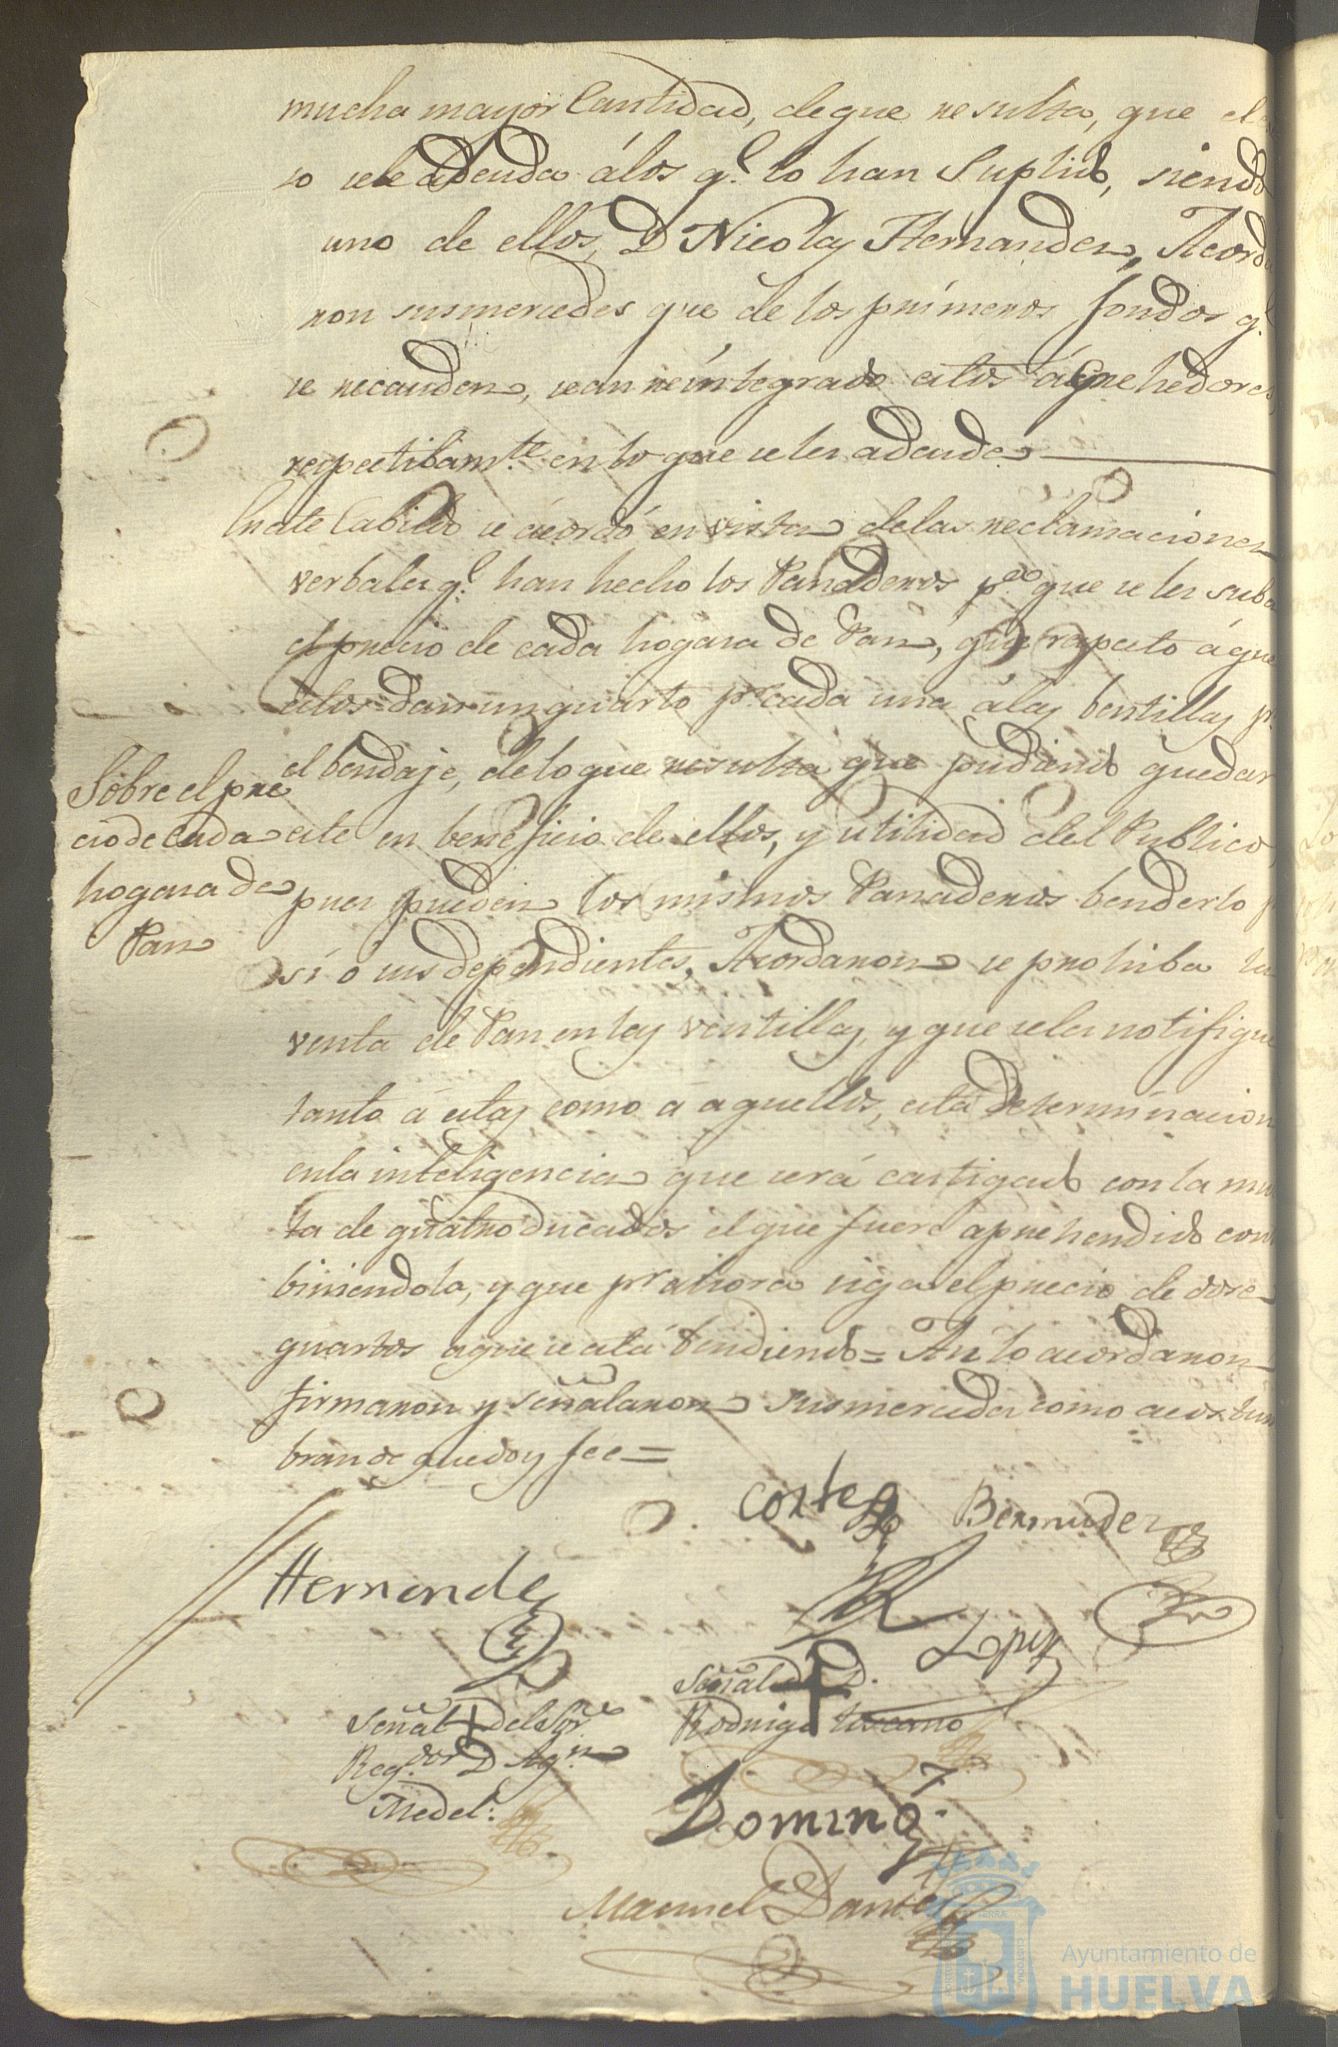 mucha mayor Cantidad, deque resulta, que el
so se le adeuda álos q.e lo han Suplido, siendo
uno de ellos, D Nicolas Hernandez, Acorda
ron susmercedes que de los primeros fondos q.e
se recauden, sean reintegrado estos ácrehedores,
respectibam.te en lo que se les adeude
En este Cabildo se acordó en vista delas reclamaciones
verbales q.e han hecho los Panaderos p.a que se les suba
el precio de cada hogasa de Pan, que respecto á que
estos dan un quarto p.r cada una á las bentillas p.r
el bendaje, delo que resulta que pudiendo quedar
Sobre el pre
cio de cada
hogasa de
Pan
este en beneficio de ellos, y utilidad del Publico,
pues pueden los mismos Panaderos benderlo p
si ó sus dependientes, Acordaron se prohiba la
venta de Pan en las ventillas, y que se les notifique
tanto á estas como á aquellos, esta determinacion
en la inteligencia que será castigado con la mul
ta de quatro Ducados el que fuere aprehendido contra
biniendola, y que p.r ahora siga el precio de dose
quartos aque se está bendiendo = Asi lo acordaron
firmaron y señalaron susmercedes como acostum
bran de que doy fee =
Cortes Bermudez
Hernandez
Lopez
Señal del Sor.
Reg.dor D Ag.n
Medel.
Señal de D.
Rodrigo Toscano
Doming.
Manuel Dante
Ayuntamiento de
HUELVA